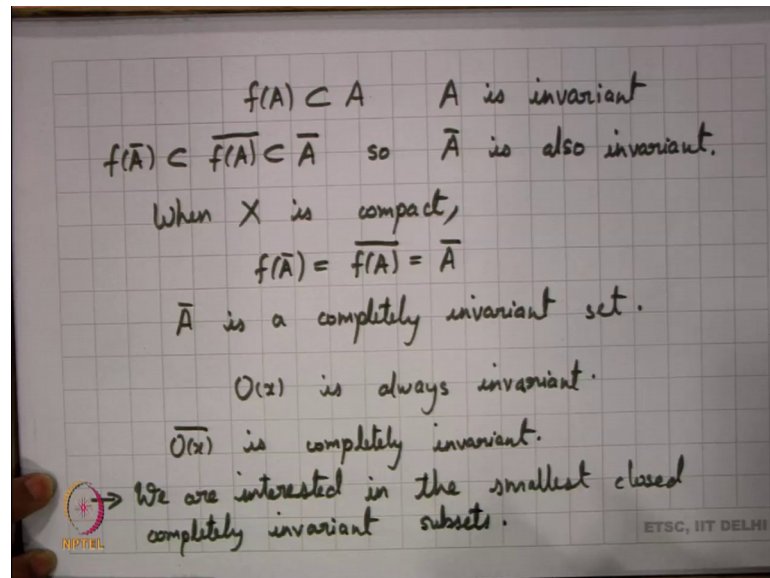 f(A) ⊂ A A is invariant
f(Ā) ⊂ \overline{f(A)} ⊂ Ā so Ā is also invariant.
When X is compact,
f(Ā) = \overline{f(A)} = Ā
Ā is a completely invariant set.
O(x) is always invariant.
\overline{O(x)} is completely invariant.
→ We are interested in the smallest closed
completely invariant subsets.
NPTEL
ETSC, IIT DELHI